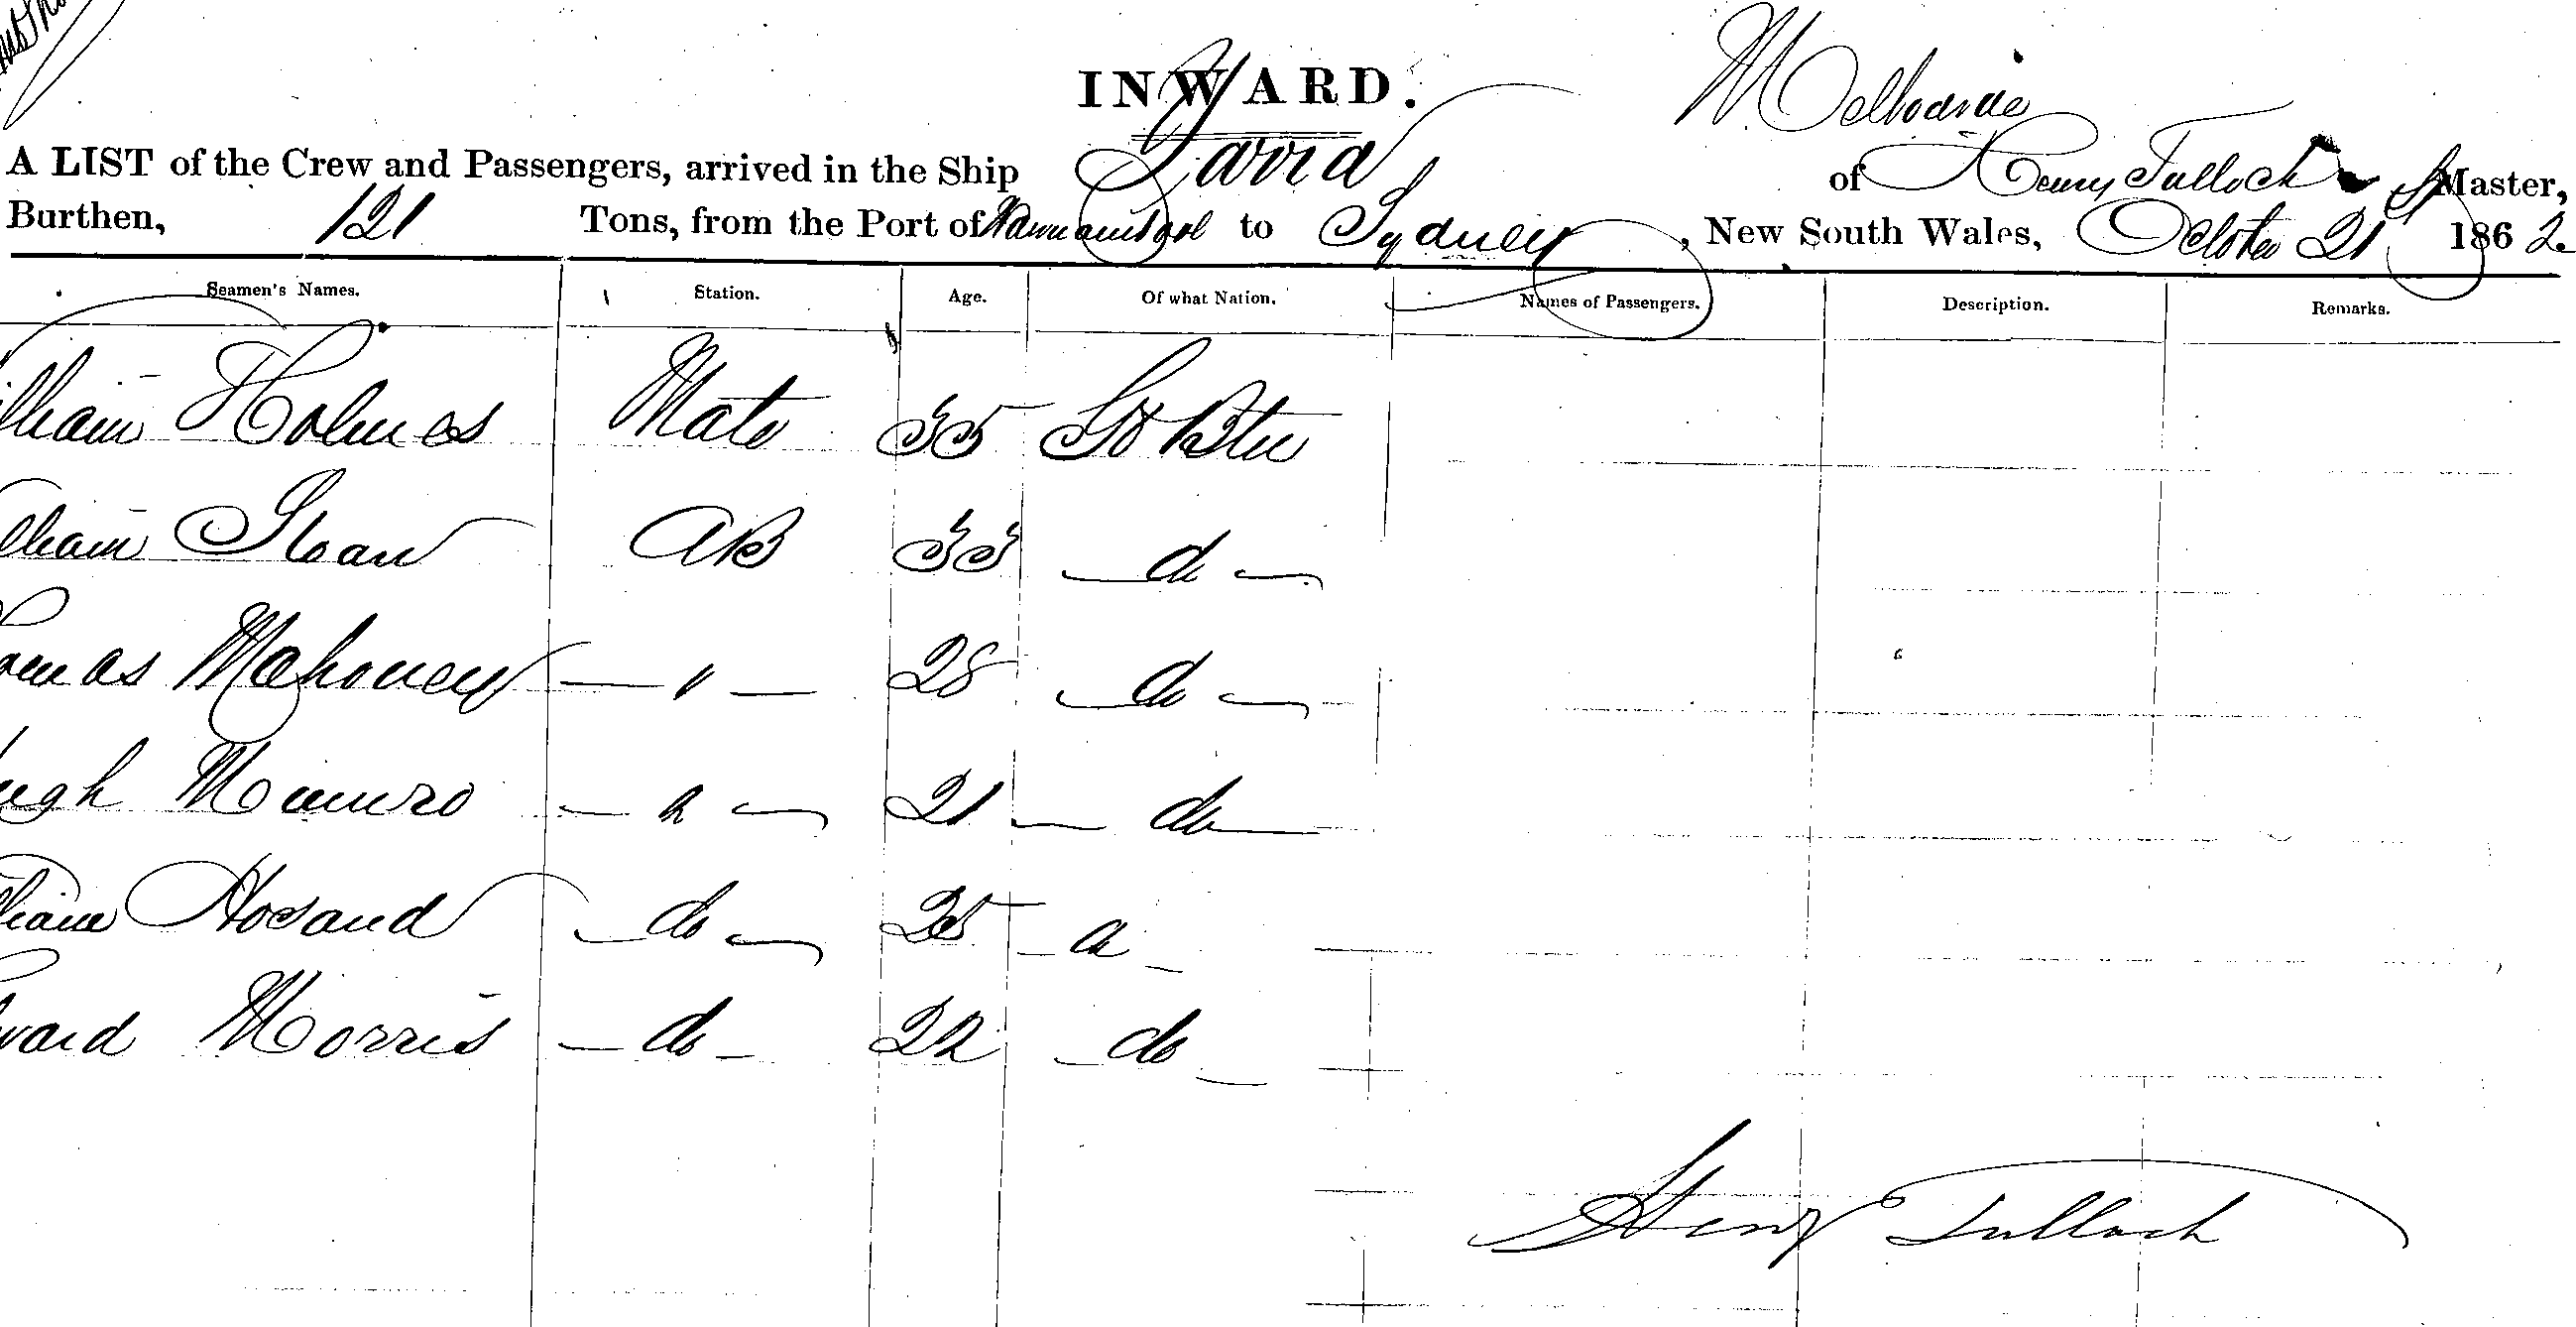 INWARD.
Melbourne
A LIST of the Crew and Passengers, arrived in the Ship Yarra of Henry Tulloch Master,
Burthen, 121 Tons, from the Port of to Sydney, New South Wales, October 21 1862.
Seamen's Names. Station. Age. Of what Nation. Names of Passengers. Description. Remarks.
William Holmes Mate 35 Gt Btn
William Sloan AB 33 do
Thomas Mahoney " 28 do
Hugh Munro " 21 do
William do 25 do
Edward Morris do 22 do
Henry Tulloch